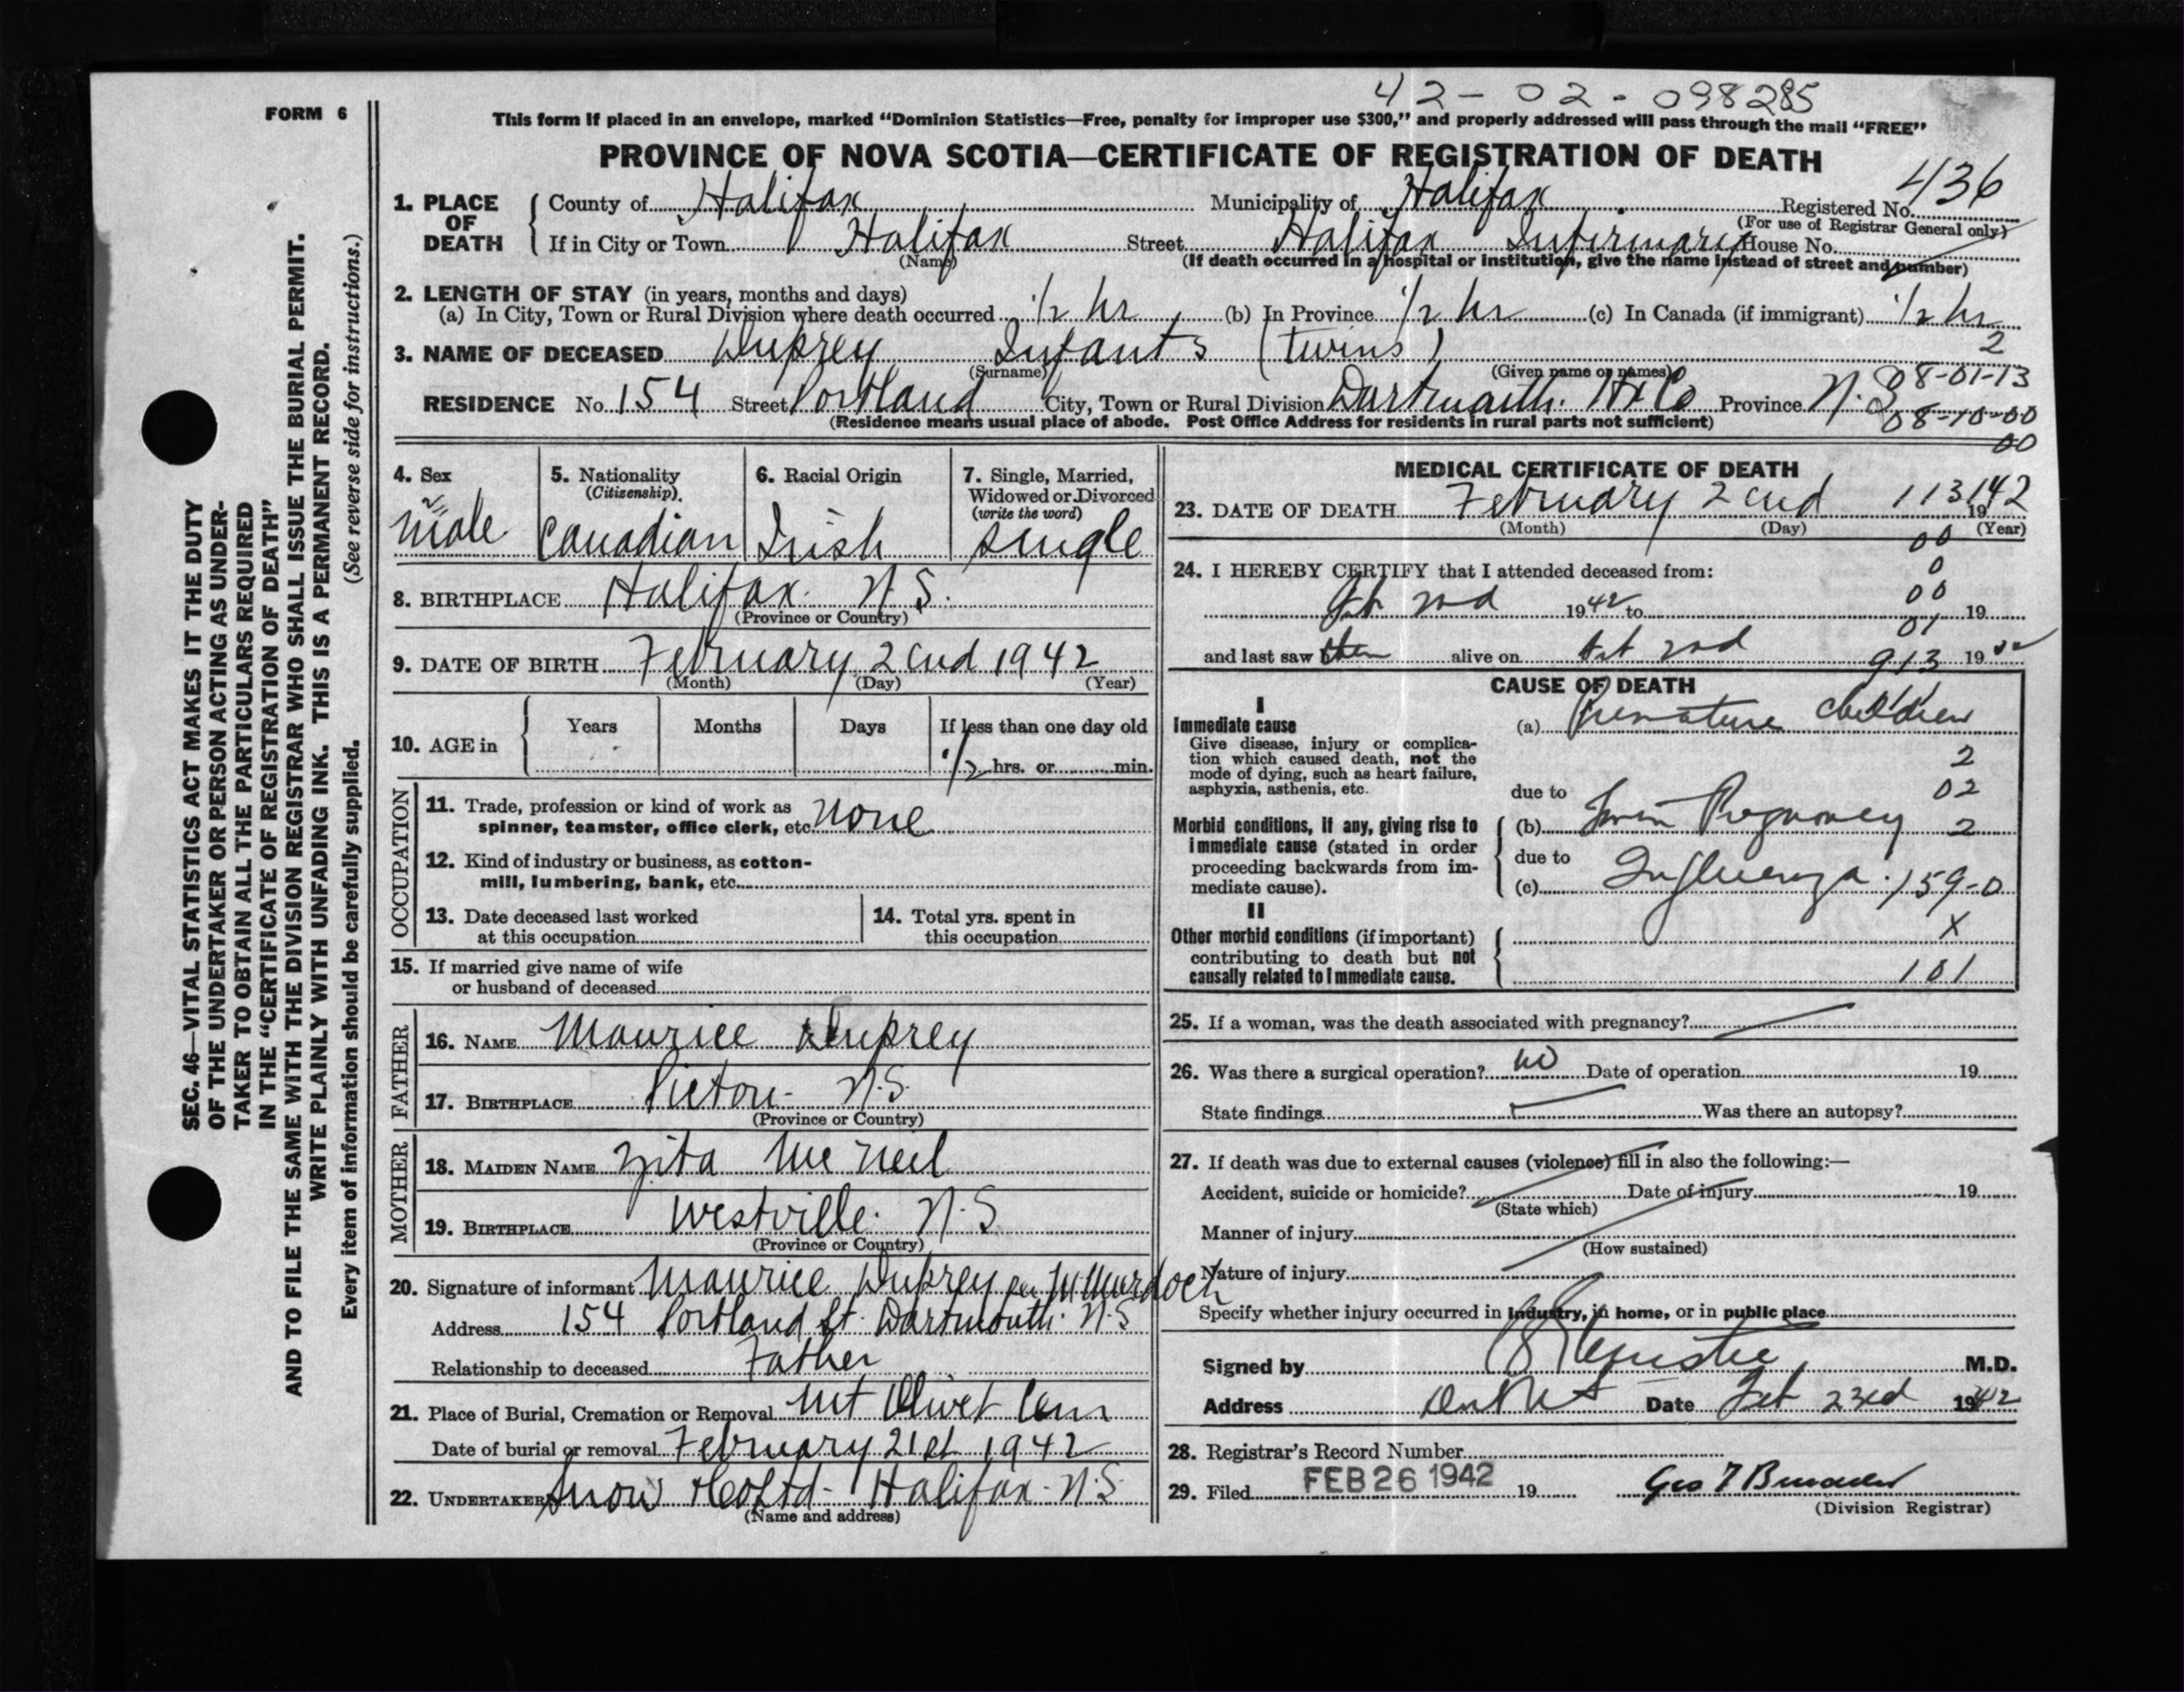 42-02-098285
FORM 6
This form if placed in an envelope, marked "Dominion Statistics—Free, penalty for improper use $300," and properly addressed will pass through the mail "FREE"
PROVINCE OF NOVA SCOTIA—CERTIFICATE OF REGISTRATION OF DEATH
436
1. PLACE OF DEATH { County of Halifax Municipality of Halifax Registered No.
(For use of Registrar General only)
If in City or Town Halifax Street Halifax Infirmary House No.
(Name) (If death occurred in a hospital or institution, give the name instead of street and number)
2. LENGTH OF STAY (in years, months and days)
(a) In City, Town or Rural Division where death occurred 1/2 hr (b) In Province 1/2 hr (c) In Canada (if immigrant) 1/2 hr
3. NAME OF DECEASED Duprey Infants (twins) 2
(Surname) (Given name or names) 08-01-13
RESIDENCE No. 154 Street Portland City, Town or Rural Division Dartmouth. Hx Co Province N.S
08-10-00
(Residence means usual place of abode. Post Office Address for residents in rural parts not sufficient)
00
4. Sex 2 male
5. Nationality (Citizenship) Canadian
6. Racial Origin Irish
7. Single, Married, Widowed or Divorced (write the word) single
8. BIRTHPLACE Halifax. N.S.
(Province or Country)
9. DATE OF BIRTH February 2cnd 1942
(Month) (Day) (Year)
10. AGE in { Years Months Days If less than one day old
1/2 hrs. or min.
OCCUPATION
11. Trade, profession or kind of work as spinner, teamster, office clerk, etc. none
12. Kind of industry or business, as cotton-mill, lumbering, bank, etc.
13. Date deceased last worked at this occupation
14. Total yrs. spent in this occupation
15. If married give name of wife or husband of deceased
FATHER
16. NAME Maurice Duprey
17. BIRTHPLACE Pictou- N.S.
(Province or Country)
MOTHER
18. MAIDEN NAME Zita McNeil
19. BIRTHPLACE Westville. N.S
(Province or Country)
20. Signature of informant Maurice Duprey per M Murdoch
Address 154 Portland St. Dartmouth. N.S
Relationship to deceased Father
21. Place of Burial, Cremation or Removal Mt Olivet Cem
Date of burial or removal February 21st 1942
22. UNDERTAKER Snow & Co Ltd- Halifax- N.S
(Name and address)
MEDICAL CERTIFICATE OF DEATH
23. DATE OF DEATH February 2cnd 113 1942
(Month) (Day) (Year)
00
24. I HEREBY CERTIFY that I attended deceased from:
0
Feb 2nd 1942 to 00 19
01
and last saw them alive on Feb 2nd 913 19
CAUSE OF DEATH
I
Immediate cause
Give disease, injury or complication which caused death, not the mode of dying, such as heart failure, asphyxia, asthenia, etc.
(a) Premature children
2
due to 02
Morbid conditions, if any, giving rise to immediate cause (stated in order proceeding backwards from immediate cause).
(b) Twin Pregnancy 2
due to
(c) Influenza. 159-0
II
Other morbid conditions (if important) contributing to death but not causally related to immediate cause.
X
101
25. If a woman, was the death associated with pregnancy?
26. Was there a surgical operation? no Date of operation 19
State findings Was there an autopsy?
27. If death was due to external causes (violence) fill in also the following:—
Accident, suicide or homicide? Date of injury 19
(State which)
Manner of injury
(How sustained)
Nature of injury
Specify whether injury occurred in industry, in home, or in public place
Signed by M.D.
Address Date Feb 23rd 1942
28. Registrar's Record Number
29. Filed FEB 26 1942 19
(Division Registrar)
SEC. 46—VITAL STATISTICS ACT MAKES IT THE DUTY
OF THE UNDERTAKER OR PERSON ACTING AS UNDER-
TAKER TO OBTAIN ALL THE PARTICULARS REQUIRED
IN THE "CERTIFICATE OF REGISTRATION OF DEATH"
AND TO FILE THE SAME WITH THE DIVISION REGISTRAR WHO SHALL ISSUE THE BURIAL PERMIT.
WRITE PLAINLY WITH UNFADING INK. THIS IS A PERMANENT RECORD.
Every item of information should be carefully supplied. (See reverse side for instructions.)